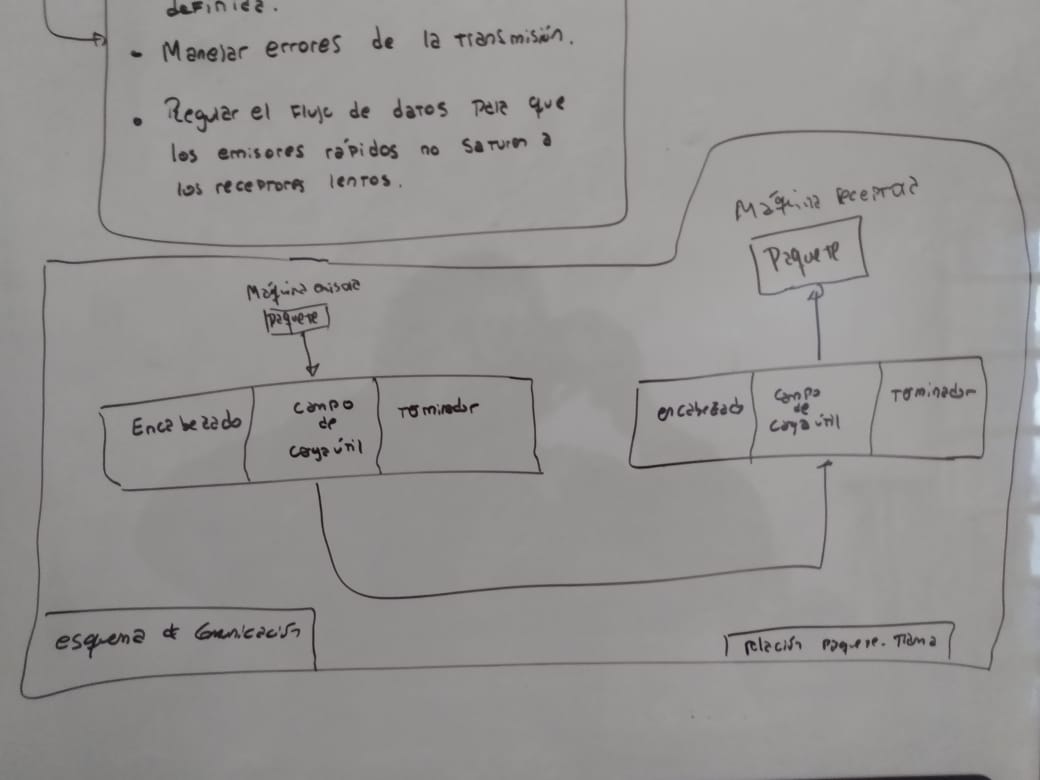 definida.
- Manejar errores de la transmisión.
• Regular el flujo de datos para que
los emisores rápidos no saturen a
los receptores lentos.
Máquina receptora
Paquete
Máquina emisora
paquete
Encabezado
campo
de
carga útil
Terminador
encabezado
campo
de
carga útil
Terminador
esquema de comunicación
relación paquete-Trama